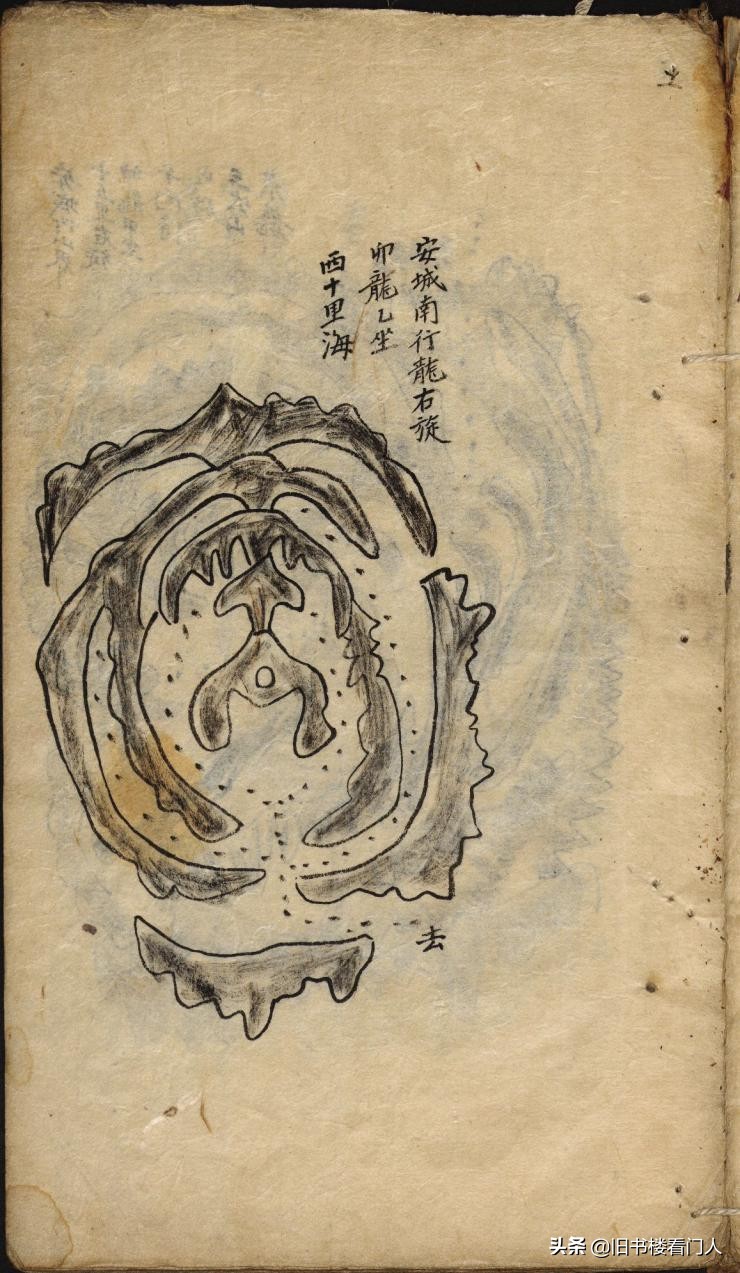 安城南行龍右旋
卯龍乙坐
西十里海
去
头条 @旧书楼看门人